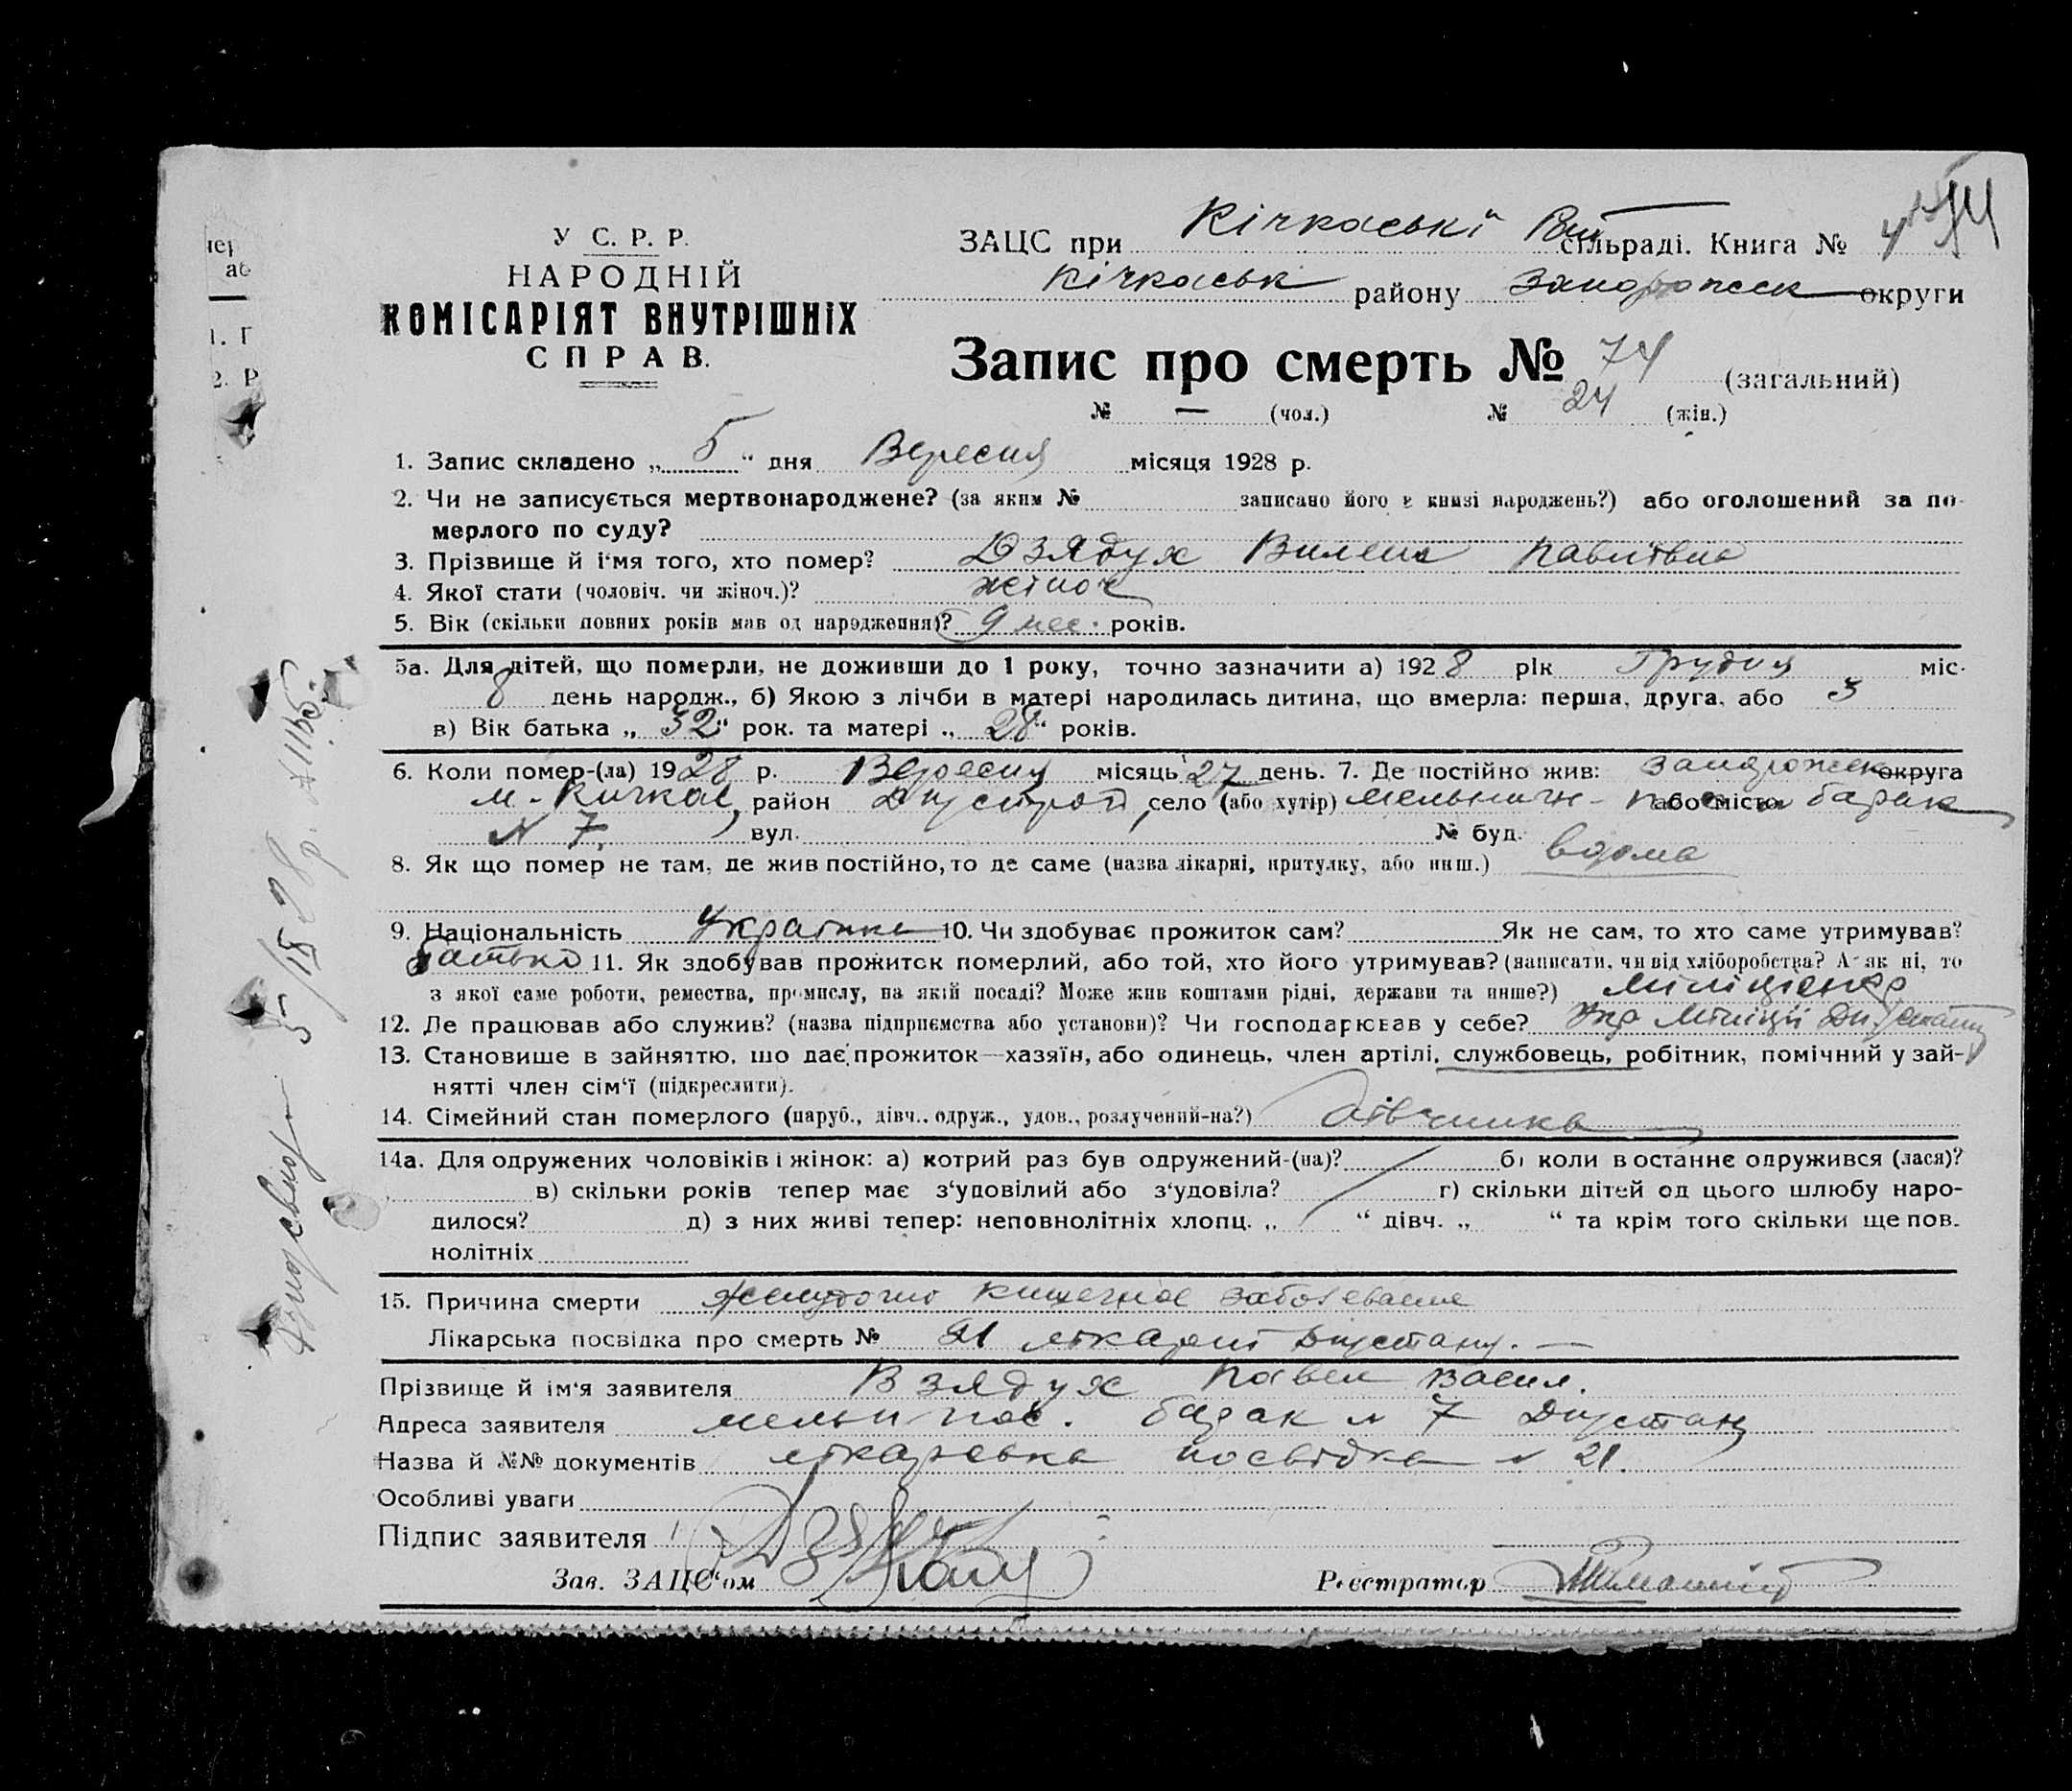 У С. Р. Р.
НАРОДНІЙ
КОМІСАРІЯТ ВНУТРІШНІХ
СПРАВ.
ЗАЦС при Кічкаські сільраді. Книга № 4
Кічкаськ району Запорожск округи
Запис про смерть № 74 (загальний)
№ — (чол.) № 24 (жін.)
1. Запис складено „ 5 “ дня Вересня місяця 1928 р.
2. Чи не записується мертвонароджене? (за яким № записано його в книзі народжень?) або оголошений за по-
мерлого по суду?
3. Прізвище й і‘мя того, хто помер? Дзядух Вилена Павлівна
4. Якої стати (чоловіч. чи жіноч.)? жіноч
5. Вік (скільки повних років мав од народження)? 9 мес. років.
5а. Для дітей, що померли, не доживши до 1 року, точно зазначити а) 1928 рік Грудня міс.
8 день народж., б) Якою з лічби в матері народилась дитина, що вмерла: перша, друга, або 3
в) Вік батька „ 32 “ рок. та матері „ 28 “ років.
6. Коли помер-(ла) 1928 р. Вересня місяць 27 день. 7. Де постійно жив: Запорожск округа
м. Кичкас, район Дпустрой, село (або хутір) Мельничн- або місто барак
№ 7, вул. № буд.
8. Як що помер не там, де жив постійно, то де саме (назва лікарні, притулку, або инш.) вдома
9. Національність Україн 10. Чи здобуває прожиток сам? Як не сам, то хто саме утримував?
батько 11. Як здобував прожиток померлий, або той, хто його утримував? (написати, чи від хліборобства? А як ні, то
з якої саме роботи, ремества, промислу, на якій посаді? Може жив коштами рідні, держави та инше?) Міліціонер
12. Де працював або служив? (назва підприємства або установи)? Чи господарював у себе? Упр Міліції
13. Становище в зайняттю, що дає прожиток—хазяїн, або одинець, член артілі, службовець, робітник, помічний у зай-
нятті член сім‘ї (підкреслити).
14. Сімейний стан померлого (паруб., дівч., одруж., удов., розлучений-на?) дівчинка
14а. Для одружених чоловіків і жінок: а) котрий раз був одружений-(на)? б) коли в останнє одружився (лася)?
в) скільки років тепер має з‘удовілий або з‘удовіла? г) скільки дітей од цього шлюбу наро-
дилося? д) з них живі тепер: неповнолітніх хлопц. „ “ дівч. „ “ та крім того скільки ще пов.
нолітніх
15. Причина смерти Желудочно кишечное заболевание
Лікарська посвідка про смерть № 21 лікарні Дпустану. —
Прізвище й ім‘я заявителя Взядух Павел Васил.
Адреса заявителя мельн пос. барак № 7 Дпустан
Назва й №№ документів лікарська посвідка № 21.
Особливі уваги
Підпис заявителя
Зав. ЗАЦС‘ом
Реєстратор
5/IX 28 р.